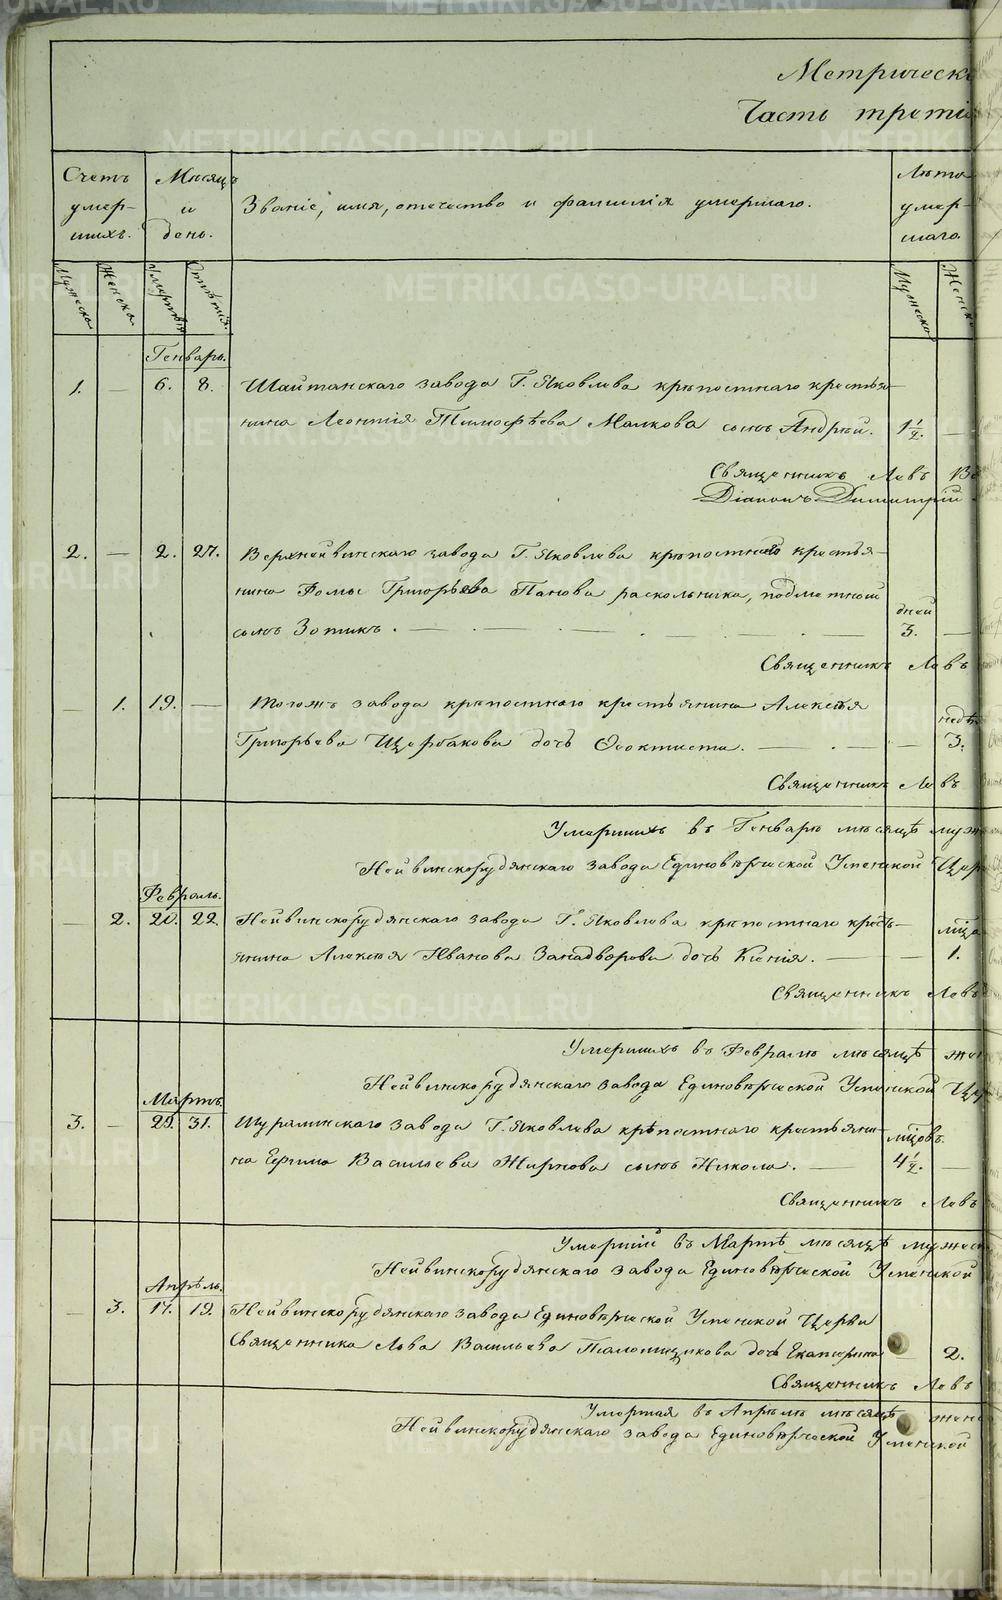 Метрическ
Часть третія
Счетъ умершихъ.
Мѣсяцъ и день.
Званіе, имя, отечество и фамилія умершаго.
Лѣта умершаго.
Мужеска Женска Смертныя Отпѣтія. Мужеска Женска
Генварь.
1. — 6. 8. Шайтанскаго завода Г. Яковлева крѣпостнаго крестья-
нина Леонтія Тимофѣева Малкова сынъ Андрей. 1 1/2. —
Священникъ Левъ
Діаконъ Димитрій
2. — 2. 27. Верхнейвинскаго завода Г. Яковлева крѣпостнаго крестья-
нина Фомы Григорьева Панова раскольника, подметной дней
сынъ Зотикъ. 3. —
Священникъ Левъ
— 1. 19. — Тогожъ завода крѣпостнаго крестьянина Алексѣя недѣ
Григорьева Щербакова дочь Феоктиста. — 3.
Священникъ Левъ
Умершихъ въ Генварѣ мѣсяцѣ муж
Нейвинскорудянскаго завода Единовѣрческой Успенской Цер
Февраль.
— 2. 20. 22. Нейвинскорудянскаго завода Г. Яковлева крѣпостнаго кресть- мѣца
янина Алексѣя Иванова Занадворова дочь Ксенія. — 1.
Священникъ Левъ
Умершихъ въ Февралѣ мѣсяцѣ жен
Нейвинскорудянскаго завода Единовѣрческой Успенской Цер
Мартъ.
3. — 29. 31. Шуралинскаго завода Г. Яковлева крѣпостнаго крестьяни- мѣцовъ.
на Ефима Васильева Жирнова сынъ Никола. — 4 1/2. —
Священникъ Левъ
Умершій въ Мартѣ мѣсяцѣ мужеск
Нейвинскорудянскаго завода Единовѣрческой Успенской
Апрѣль.
— 3. 17. 19. Нейвинскорудянскаго завода Единовѣрческой Успенской Церкви
Священника Льва Васильева дочь Екатерина — 2.
Священникъ Левъ
Умершая въ Апрѣлѣ мѣсяцѣ женс
Нейвинскорудянскаго завода Единовѣрческой Успенской
METRIKI.GASO-URAL.RU